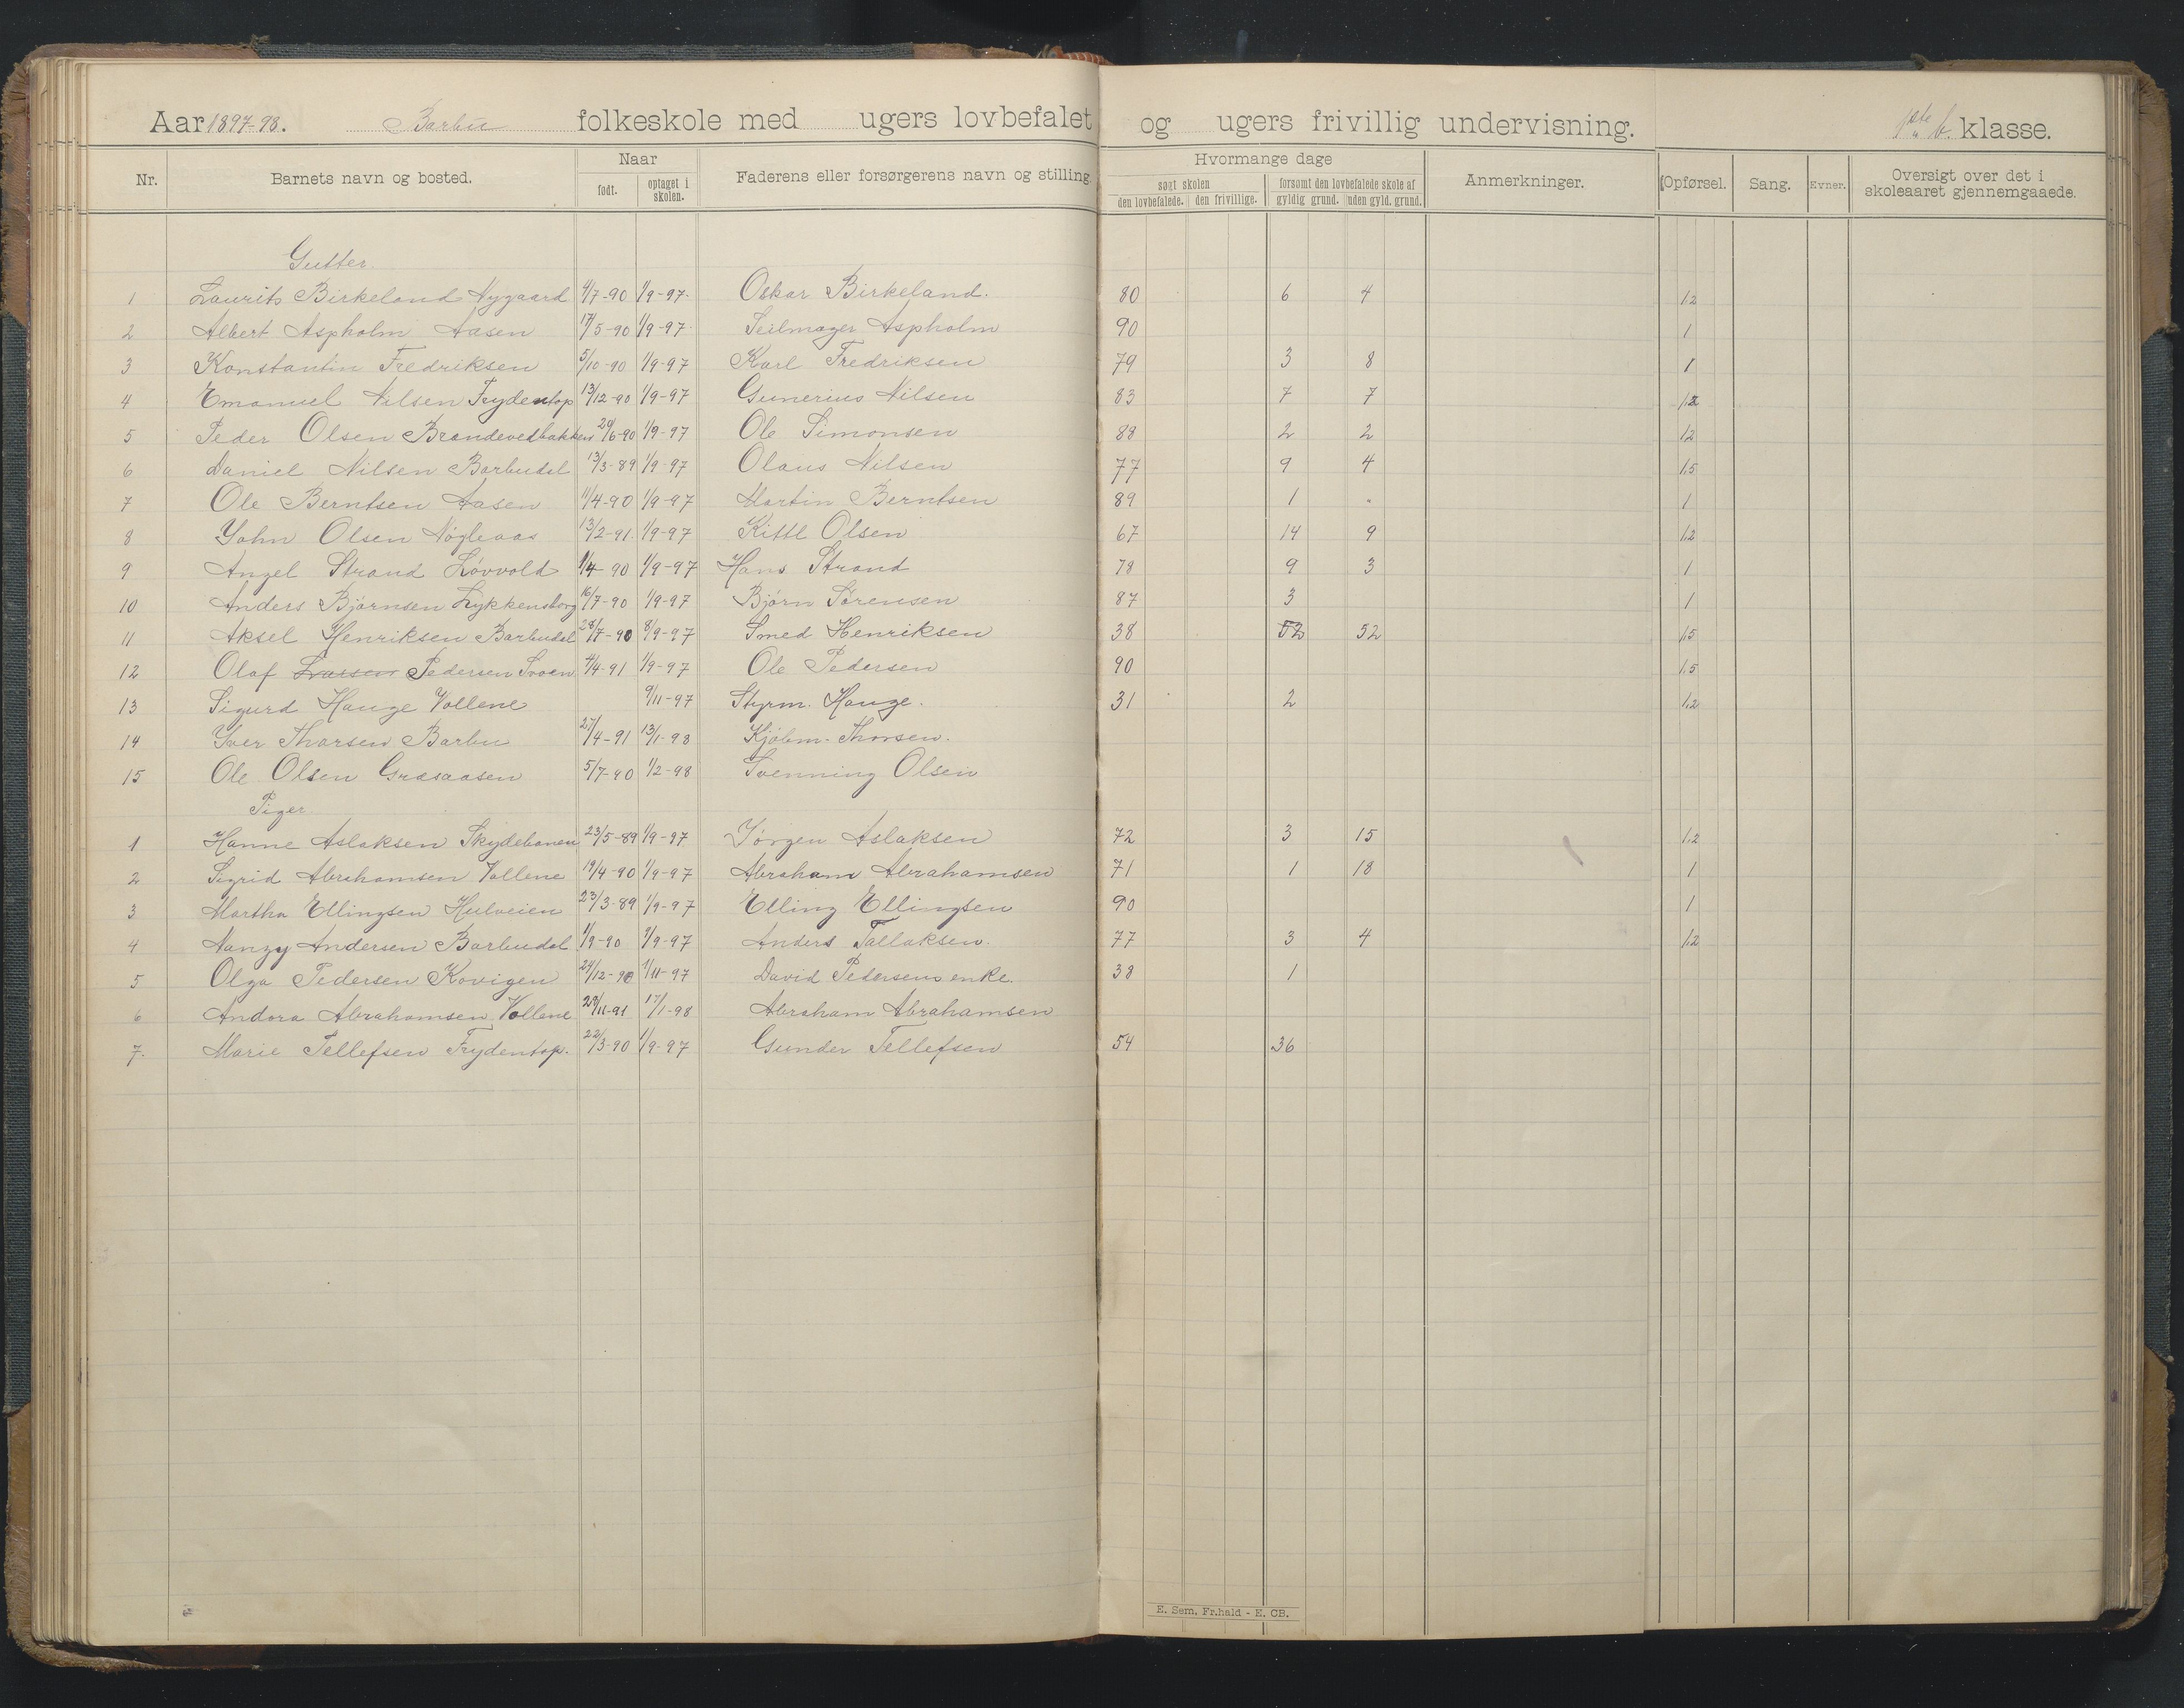 Aar 1897-98. Barbu folkeskole med ugers lovbefalet og ugers frivillig undervisning. 1ste b. klasse.
Nr. Barnets navn og bosted. Naar født. optaget i skolen. Faderens eller forsørgerens navn og stilling. Hvormange dage søgt skolen den lovbefalede. den frivillige. forsømt den lovbefalede skole af gyldig grund. uden gyld. grund. Anmerkninger. Opførsel. Sang. Evner. Oversigt over det i skoleaaret gjennemgaaede.
Gutter.
1 Laurits Birkeland Nygaard 4/7-90 1/9-97. Oskar Birkeland. 80 6 4 1,2
2 Albert Aspholm Aasen 17/5-90 1/9-97. Seilmager Aspholm 90 1
3 Konstantin Fredriksen 5/10-90 1/9-97 Karl Fredriksen 79 3 8 1
4 Emanuel Nilsen Frydentop 13/12-90 1/9-97 Gunerius Nilsen 83 7 7 1,2
5 Peder Olsen Brandevedbakken 20/6-90 1/9-97 Ole Simonsen 88 2 2 1,2
6 Daniel Nilsen Barbudal 13/3-89 1/9-97 Olaus Nilsen 77 9 4 1,5
7 Ole Berntsen Aasen 11/4-90 1/9-97 Martin Berntsen 89 1 " 1
8 John Olsen Nøgleaas 13/2-91. 1/9-97 Kittl Olsen 67 14 9 1,2
9 Angel Strand Løvvold 1/4-90 1/9-97 Hans Strand 78 9 3 1
10 Anders Bjørnsen Lykkensborg 16/7-90 1/9-97 Bjørn Sørensen 87 3 1
11 Aksel Henriksen Barbudal 28/7-90 8/9-97 Smed Henriksen 38 52 52 1,5
12 Olaf Larsen Pedersen Svoen 4/4-91 1/9-97 Ole Pedersen 90 1,5
13 Sigurd Hauge Vollene 9/11-97 Styrm. Hauge. 31 2 1,2
14 Iver Thorsen Barbu 27/4-91 13/1-98 Kjøbm. Thorsen.
15 Ole Olsen Græsaasen 5/7-90 1/2-98 Svenning Olsen
Piger
1 Hanne Aslaksen Skydebanen 23/5-89 1/9-97 Jørgen Aslaksen 72 3 15 1,2
2 Sigrid Abrahamsen Vollene 19/4-90 1/9-97 Abraham Abrahamsen 71 1 18 1
3 Martha Ellingsen Hulveien 23/3-89 1/9-97 Elling Ellingsen 90 1
4 Nanzy Andersen Barbudal 1/9-90 1/9-97 Anders Tallaksen. 77 3 4 1,2
5 Olga Pedersen Kovigen 24/12-90 1/11-97 David Pedersens enke. 38 1
6 Andora Abrahamsen Vollene 28/11-91 17/1-98 Abraham Abrahamsen
7. Marie Tellefsen Frydentop. 22/3-90 1/9-97 Gunder Tellefsen 54 36
E. Sem, Fr.hald - E. CB.